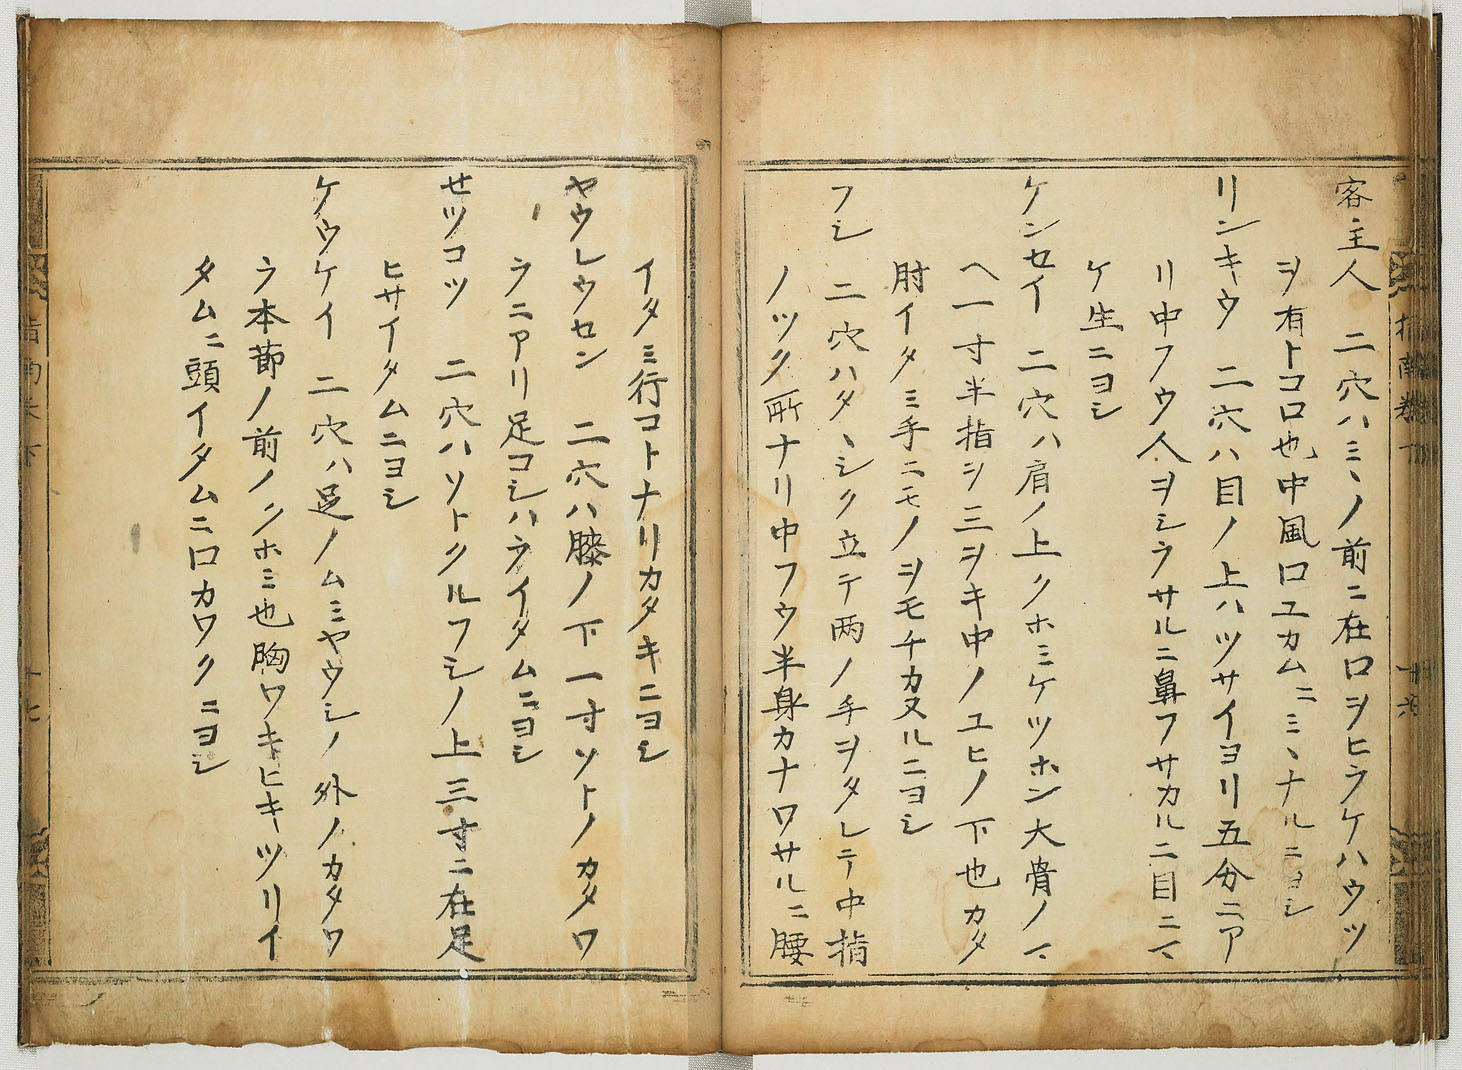 客主人 二穴ハミヽノ前ニ在口ヲヒラケハウツ
ヲ有トコロ也中風口ユカムニミヽナルニヨシ
リンキウ 二穴ハ目ノ上ハツサイヨリ五分ニア
リ中フウ人ヲシラサルニ鼻フサカルニ目ニマ
ケ生ニヨシ
ケンセイ 二穴ハ肩ノ上クホミケツホン大骨ノマ
ヘ一寸半指ヲ三ヲキ中ノユヒノ下也カタ
肘イタミ手ニモノヲモチカヌルニヨシ
フシ 二穴ハタヽシク立テ両ノ手ヲタレテ中指
ノツク所ナリ中フウ半身カナワサルニ腰
イタミ行コトナリカタキニヨシ
ヤウレウセン 二穴ハ膝ノ下一寸ソトノカタワ
ラニアリ足コシハライタムニヨシ
セツコツ 二穴ハソトクルフシノ上三寸ニ在足
ヒサイタムニヨシ
ケウケイ 二穴ハ足ノムミヤウシノ外ノカタワ
ラ本莭ノ前ノクホミ也胸ワキヒキツリイ
タムニ頭イタムニ口カワクニヨシ